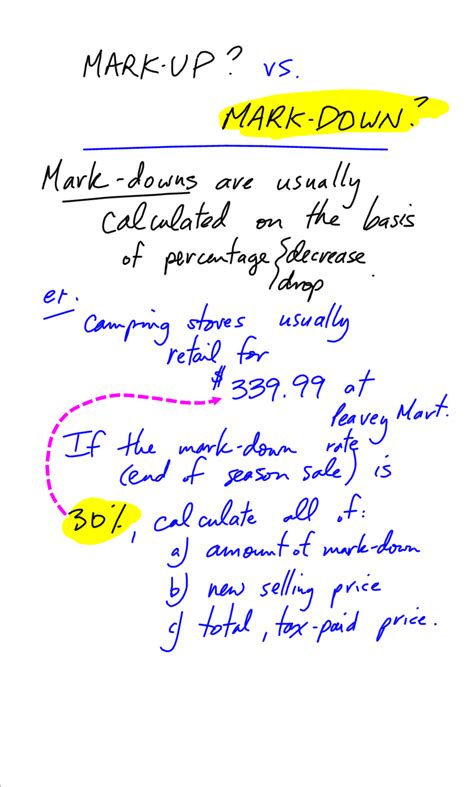 MARK-UP? vs.
MARK-DOWN?
Mark-downs are usually
calculated on the basis
of percentage {decrease
drop
ex.
camping stoves usually
retail for
$339.99 at
Peavey Mart.
If the mark-down rate
(end of season sale) is
30%, calculate all of:
a) amount of mark-down
b) new selling price
c) total, tax-paid price.